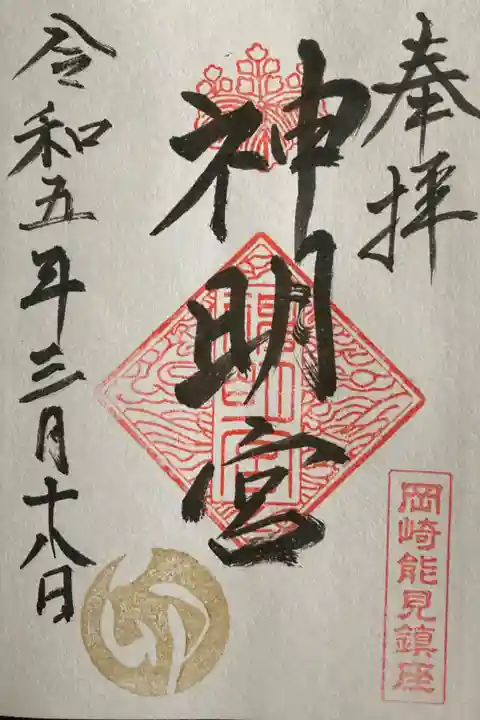 奉拝
神明宮
岡崎能見鎮座
令和五年三月十八日